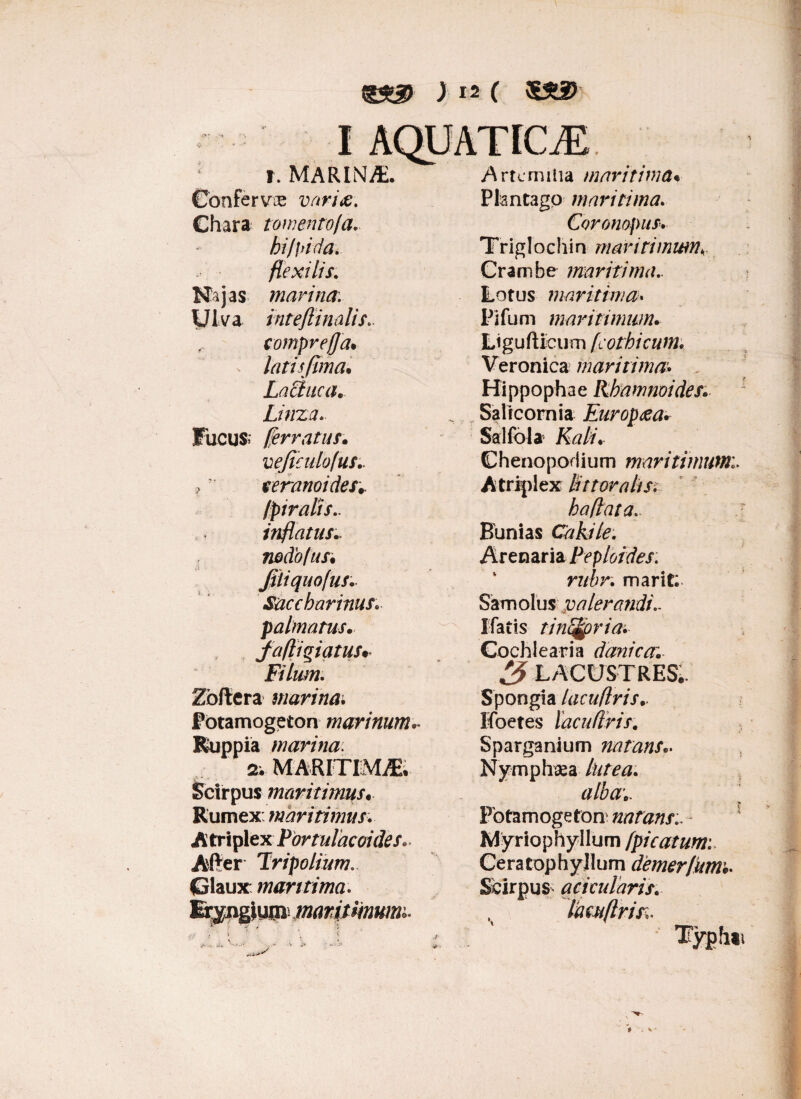 ) 12 (
I AQUATICÆ
1. MARINÆ.
Confervæ variæ.
Chara tomentoſa.
hiſpida.
flexilis.
Najas marina.
Ulva inteſtinalis.
compreſſa.
latisſima.
Lactuca.
Linza.
Fucus ſerratus.
veſiculoſus.
ceranoides.
ſpiralis.
inflatus.
nodoſus.
ſiliquoſus.
Saccharinus.
palmatus.
faſtigiatus.
Filum.
Zoſtera marina.
Potamogeton marinum.
Ruppia marina.
2. MARITIMÆ.
Scirpus maritimus.
Rumex maritimus.
Atriplex Portulacoides.
Aſter Tripolium.
Glaux maritima.
Eryngium maritimum.
Artemiſia maritima.
Plantago maritima.
Coronopus.
Triglochin maritimum.
Crambe maritima.
Lotus maritima.
Piſum maritimum.
Liguſticum ſcothicum.
Veronica maritima.
Hippophae Rhamnoides.
Salicornia Europæa.
Salſola Kali.
Chenopodium maritimum.
Atriplex littoralis.
haſtata.
Bunias Cakile.
Arenaria Peploides.
rubr. marit.
Samolus valerandi.
Iſatis tinctoria.
Cochlearia danica.
3 LACUSTRES.
Spongia lacuſtris.
Iſoetes lacuſtris.
Sparganium natans.
Nymphæa lutea.
alba.
Potamogeton natans.
Myriophyllum ſpicatum.
Ceratophyllum demerſum.
Scirpus acicularis.
lacuſtris.
Typha